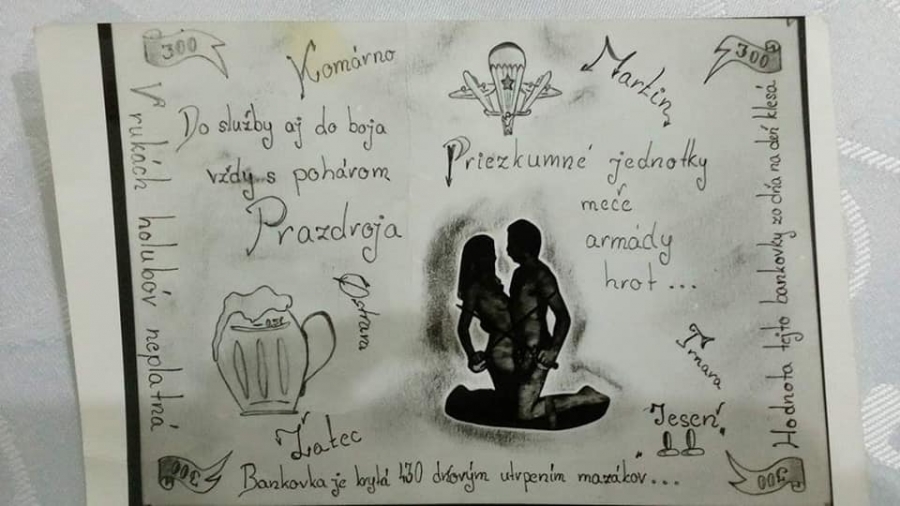 300
Komárno
Martin
300
V rukách holubov neplatná
Do služby aj do boja
vždy s pohárom
Prazdroja
Ostrava
Priezkumné jednotky
meče
armády
hrot...
Trnava
Jeseň
Žatec
Hodnota tejto bankovky zo dňa na deň klesá
300
Bankovka je krytá 430 dňovým utrpením mazákov...
300